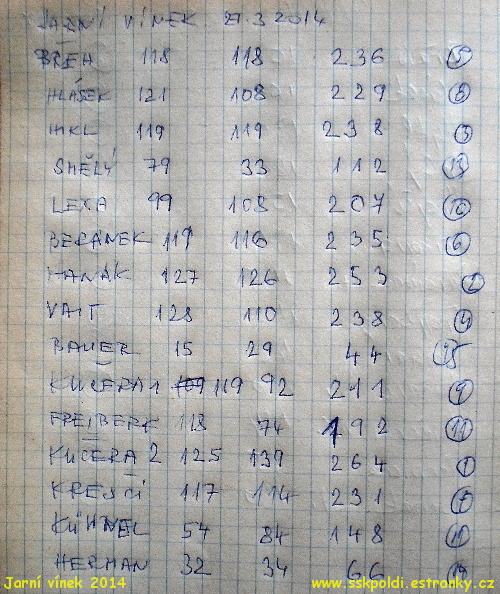 JARNÍ VÍNEK 29.3 2014
BŘEH 118 118 236 5
HLÁSEK 121 108 229 8
HIKL 119 119 238 3
SMĚLÝ 79 33 112 13
LEXA 99 108 207 10
BERÁNEK 119 116 235 6
HANÁK 127 126 253 2
VAIT 128 110 238 4
BAUER 15 29 44 15
KUČERA 1 119 92 211 9
FREIBERK 118 74 192 11
KUČERA 2 125 139 264 1
KREJČÍ 117 114 231 7
KÜHNEL 54 84 148
HERMAN 32 34 66 14
Jarní vínek 2014 www.sskpoldi.estranky.cz